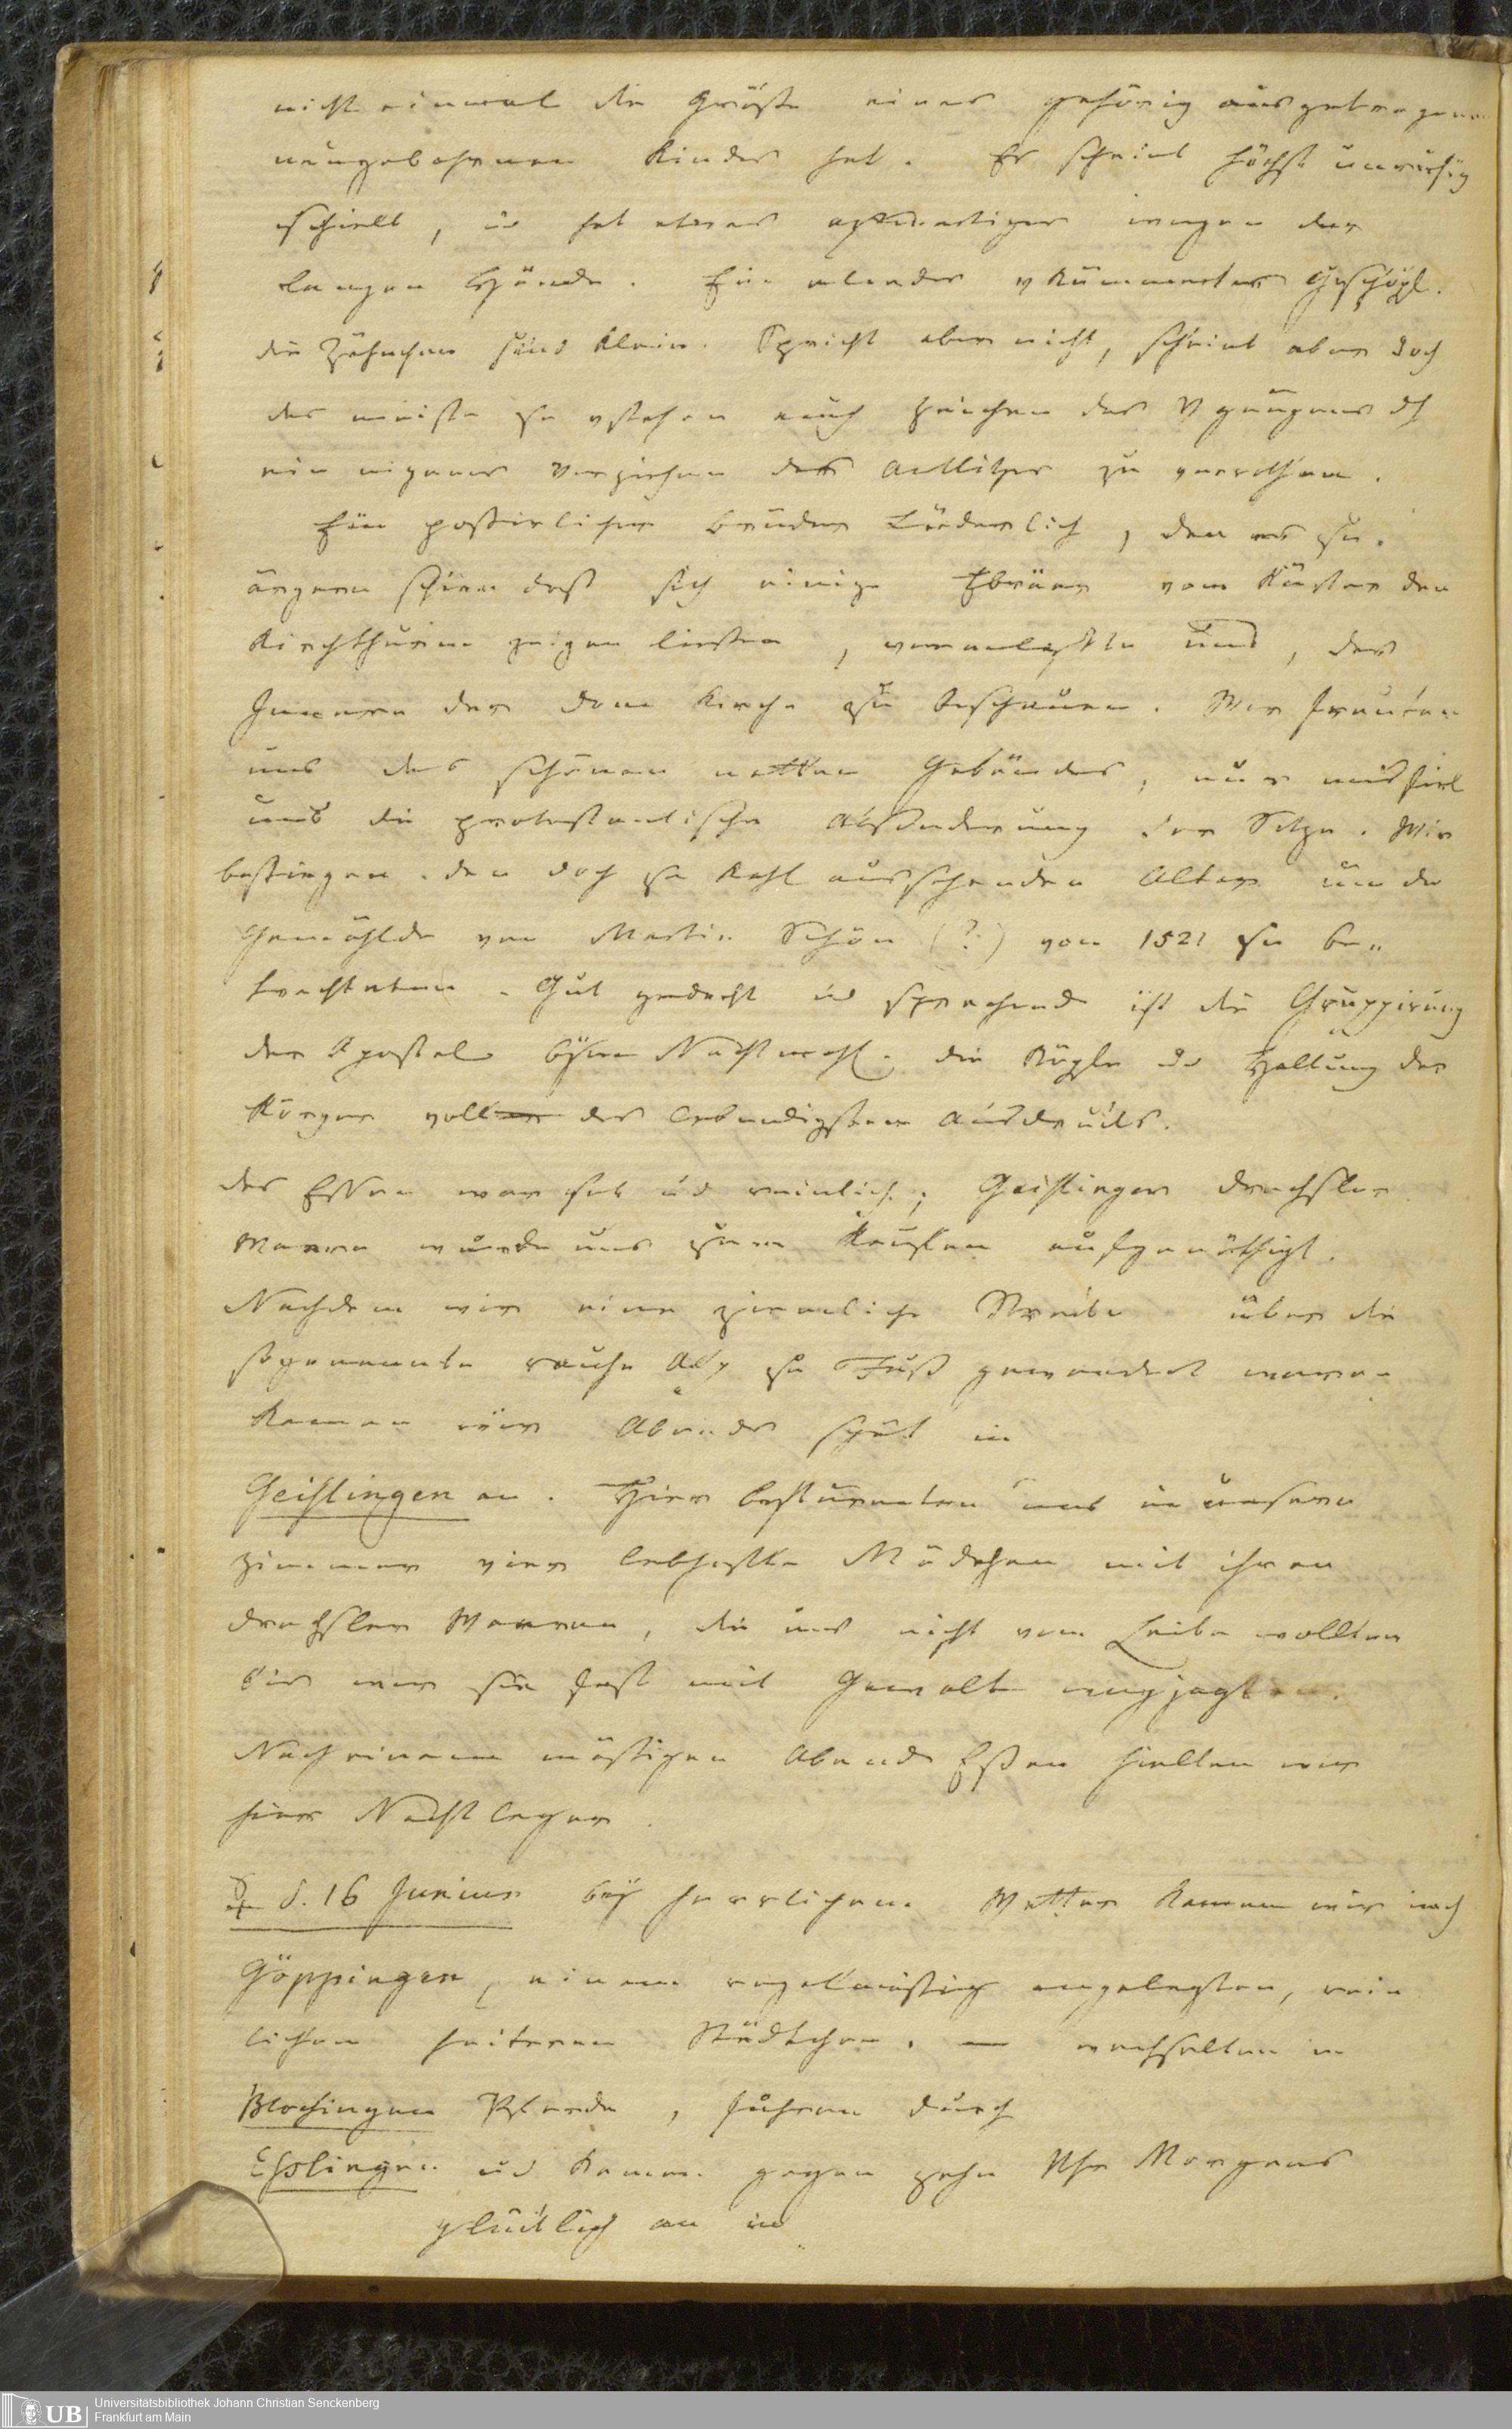 nicht einmal die Größe eines gehörig ausgetragenen
neugebohrnen Kindes hat. Er scheint höchst unruhig
schielt, ud hat etwas affenartiges wegen der
langen Hände. Ein elendes vkümmertes Geschöpf.
die Zähnchen sind klein. Spricht aber nicht, scheint aber doch
das meiste zu vstehen auch Zeichen des Vgnügens dch
ein eignes Verziehen des Antlitzes zu verrathen.
Ein possierlicher Bruder Liederlich, den es zu
ärgern schien daß sich einige Ebräer vom Küster den
Kirchthurm zeigen ließen, veranlaßte uns, das
Innere der Dom Kirche zu beschauen. Wir freuten
uns des schönen netten Gebäudes, nur misfiel
uns die protestantische Absonderung der Sitze. Wir
bestiegen den doch so kahl aussehenden Altar um die
Gemählde von Martin Schön (?) von 1521 zu be-
trachten. Gut gedacht ud sprechend ist die Gruppirung
der Apostel beym Nachtmahl. die Köpfe ud Haltung der
Körper voll des lebendigsten Ausdrucks.
das Essen war gut ud reinlich; Geislinger Drechsler
Waare wurde uns zum Kaufen aufgenöthigt.
Nachdem wir eine ziemliche Strecke über die
sogenannte rauhe Alp zu Fuß gewandert waren
kamen wir Abends spät in
Geislingen an. Hier bestürmten uns in unserm
Zimmer vier lebhafte Mädchen mit ihren
Drechsler Waaren, die uns nicht vom Leibe wollten
bis wir sie fast mit Gewalt wegjagten.
Nach einem mäßigen Abend Eßen hielten wir
hier Nachtlager.
d. 16 Junius bey herrlichem Wetter kamen wir nach
Göppingen, einem regelmäßig angelegten, rein
lichen heiteren Städtchen. — wechselten in
Blochingen Pferde, fuhren durch
Eßlingen ud kamen gegen zehn Uhr Morgens
glücklich an in
UB
Universitätsbibliothek Johann Christian Senckenberg
Frankfurt am Main